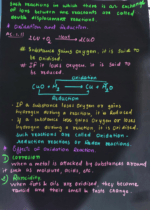 Such reactions in which there is an exchange
of ions between the reactants are called
double displacement reactions.
Oxidation and Reduction
2Cu + O₂ heat 2CuO
If a substance gains oxygen, it is said to
be oxidised.
If it loses oxygen, it is said to
be reduced.
Oxidation
CuO + H₂ → Cu + H₂O
Reduction
If a substance loses oxygen or gains
hydrogen during a reaction, it is
If a substance gains oxygen or loses
hydrogen during a reaction, it is oxidised.
Such reactions are called Oxidation -
Reduction reactions or Redox reactions.
Effects of Oxidation Reaction
Corrosion
When a metal is attacked by substances around
it such as moisture, acids, etc.
Rancidity
When fats & oils are oxidised, they become
rancid and their smell & taste change.